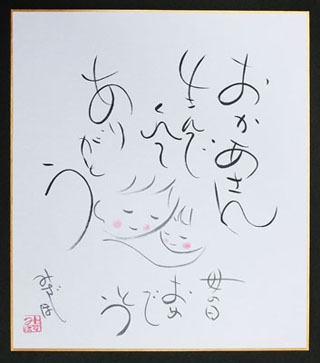 おかあさん
生んで
くれて
ありがと
う
母の日
おめ
で
とう